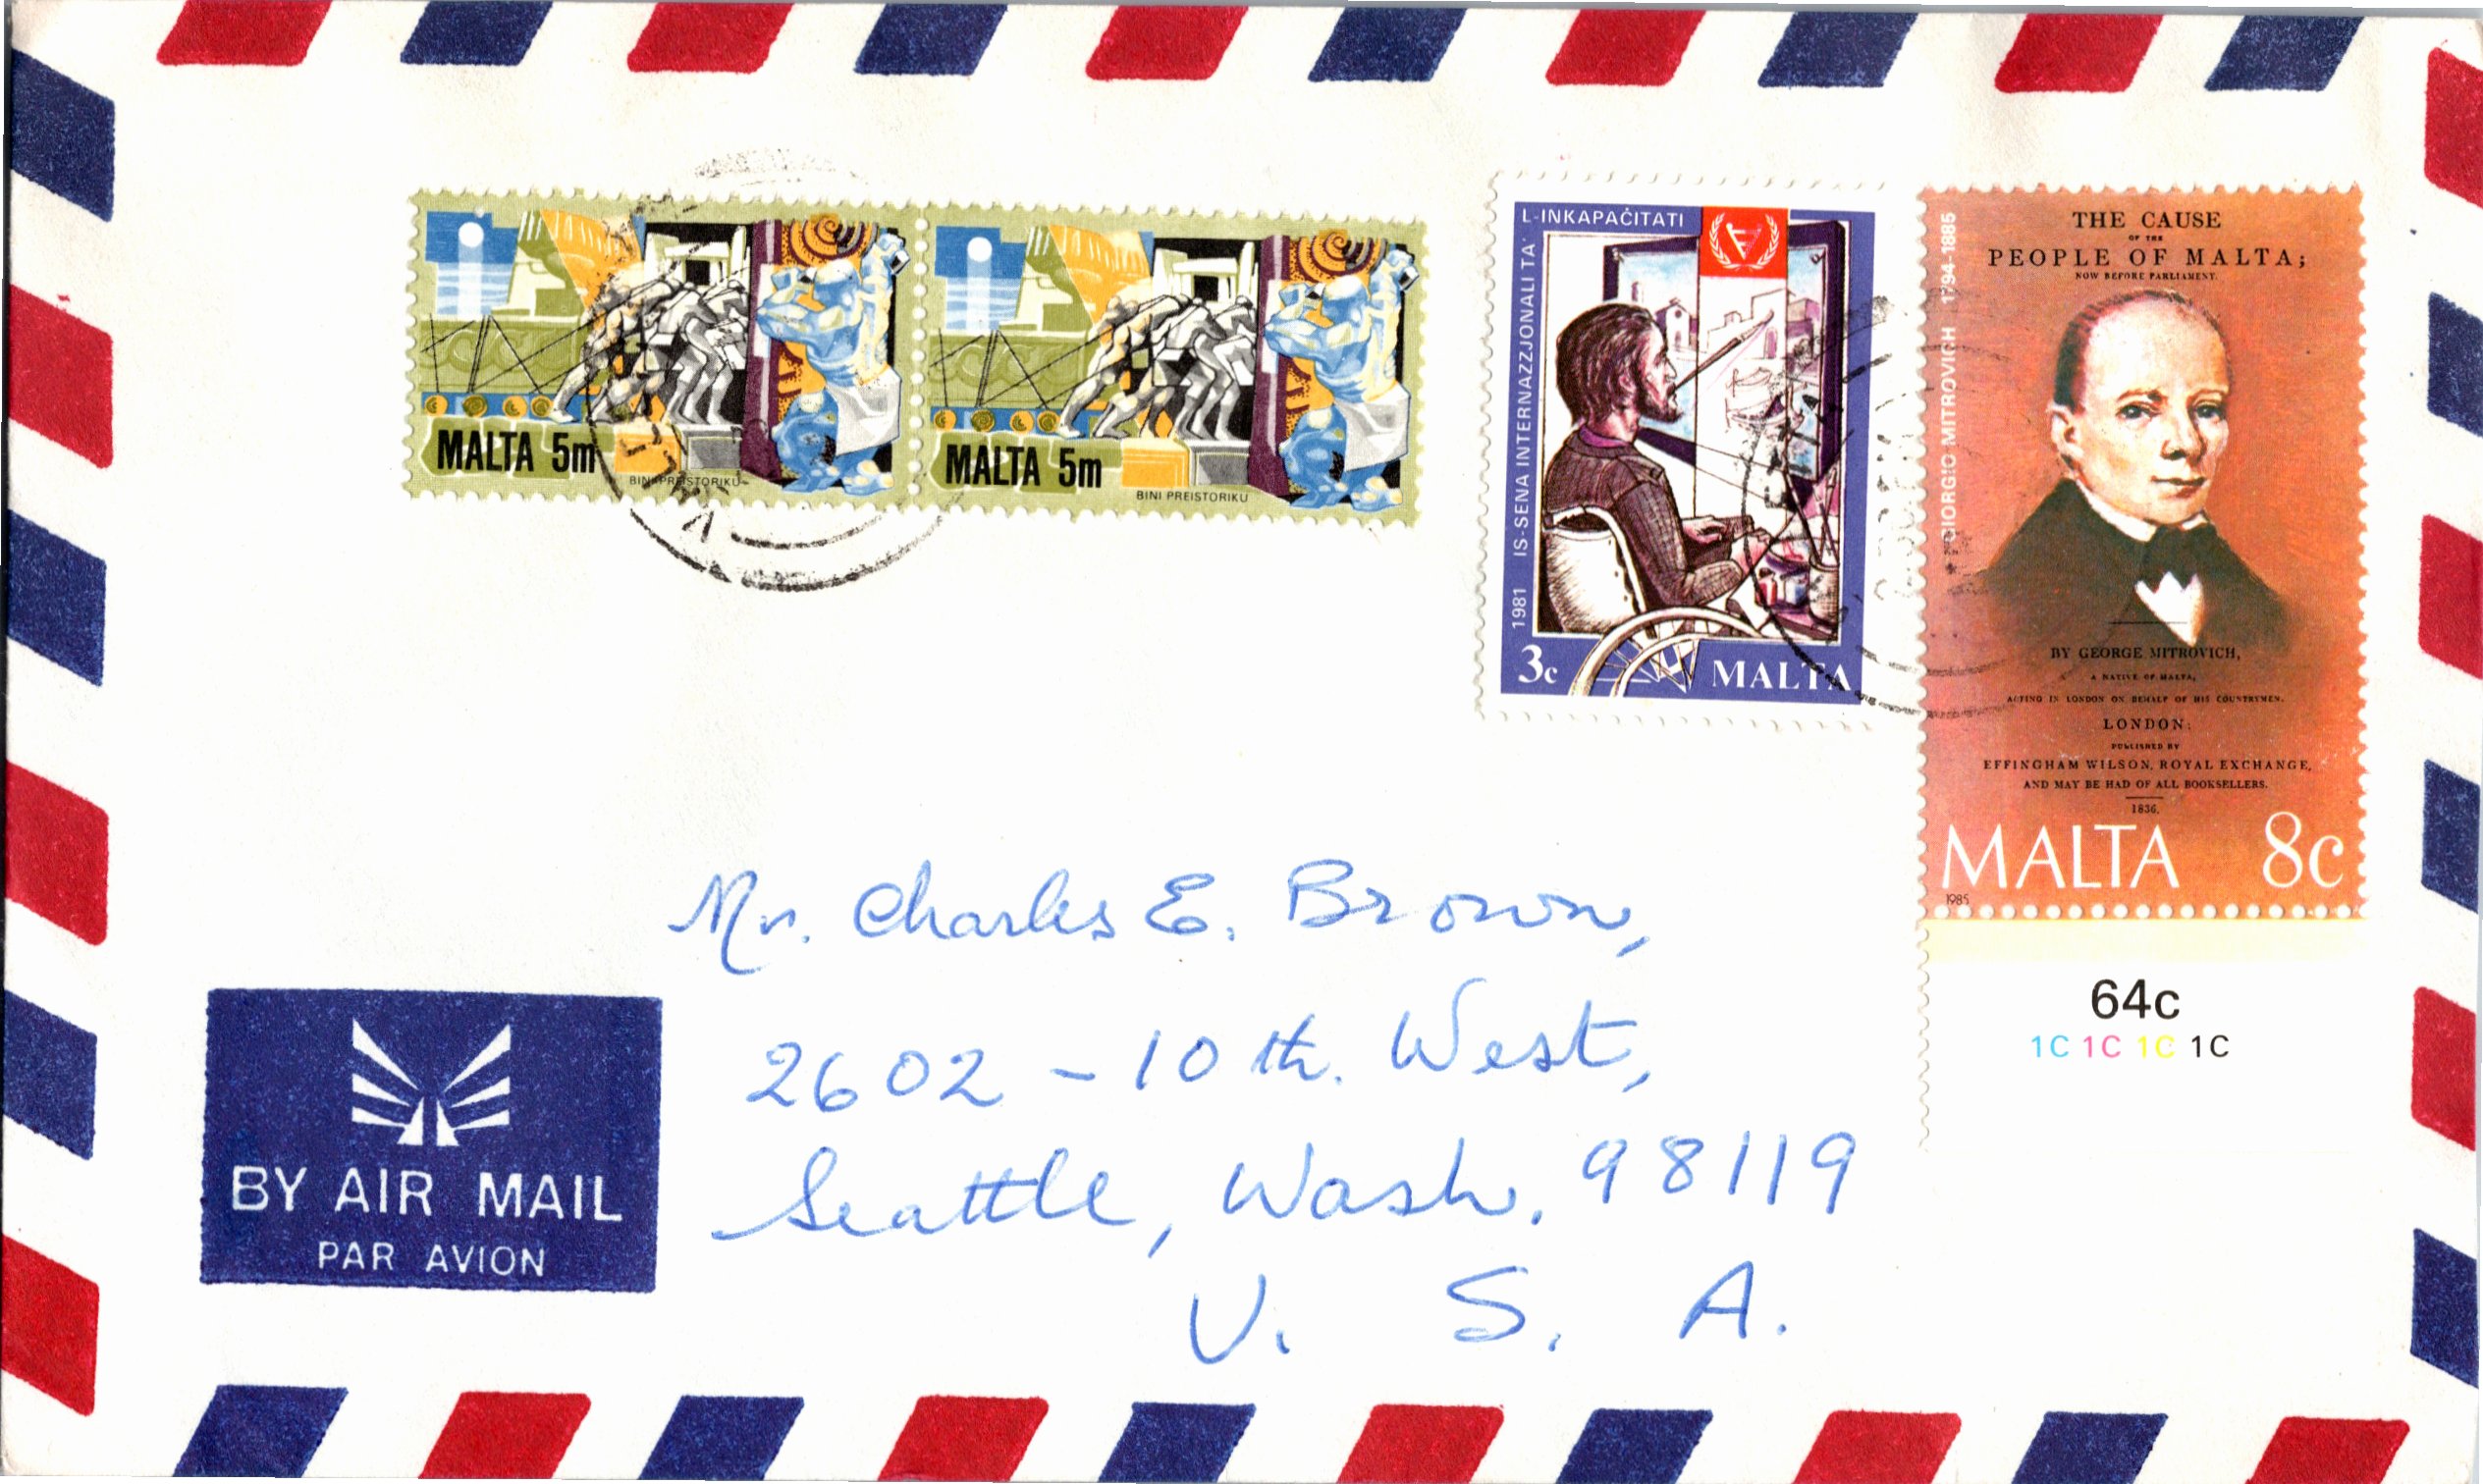 MALTA 5m
BINI PREISTORIKU
MALTA 5m
BINI PREISTORIKU
L-INKAPAĊITATI
1981 IS-SENA INTERNAZZJONALI TA'
3c MALTA
GIORGIO MITROVICH 1794-1885
THE CAUSE
OF THE
PEOPLE OF MALTA;
NOW BEFORE PARLIAMENT.
BY GEORGE MITROVICH,
A NATIVE OF MALTA,
ACTING IN LONDON ON BEHALF OF HIS COUNTRYMEN.
LONDON:
PUBLISHED BY
EFFINGHAM WILSON, ROYAL EXCHANGE,
AND MAY BE HAD OF ALL BOOKSELLERS.
1836.
MALTA 8c
1985
64c
1C 1C 1C 1C
Mr. Charles E. Brown,
2602 - 10 th. West,
Seattle, Wash. 98119
U. S. A.
BY AIR MAIL
PAR AVION